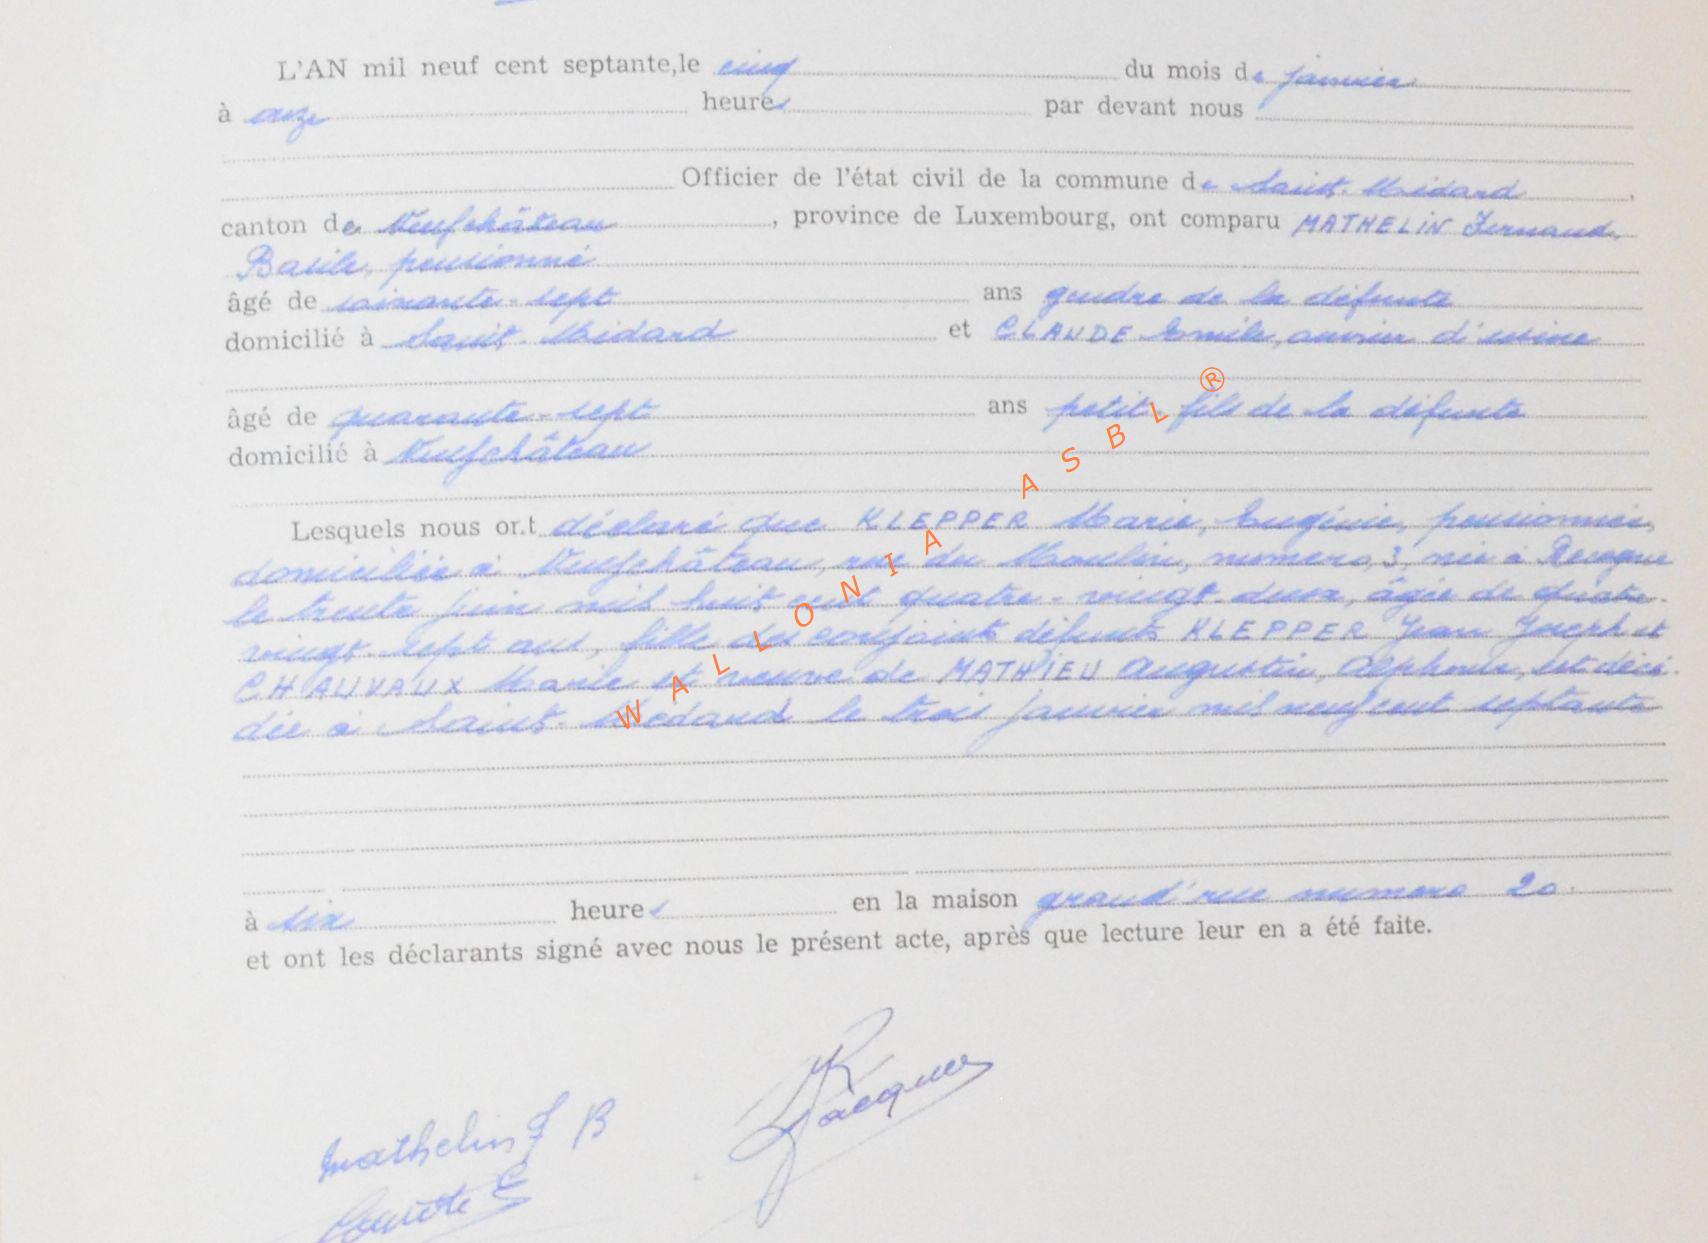 L'AN mil neuf cent septante,le cinq du mois de janvier
à onze heures par devant nous
Officier de l'état civil de la commune de Saint-Médard,
canton de Neufchâteau, province de Luxembourg, ont comparu MATHELIN Fernand,
Basile, pensionné
âgé de soixante-sept ans gendre de la défunte
domicilié à Saint-Médard et CLAUDE Emile, ouvrier d'usine
âgé de quarante-sept ans petit-fils de la défunte
domicilié à Neufchâteau
Lesquels nous ont déclaré que KLEPPER Marie, Eugénie, pensionnée,
domiciliée à Neufchâteau, rue du Moulin, numéro 3, née à Recogne
le trente juin mil huit cent quatre-vingt-deux, âgée de quatre-
vingt-sept ans, fille des conjoints défunts KLEPPER Jean Joseph et
CHAUVAUX Marie et veuve de MATHIEU Augustin, Alphonse, est décé-
dée à Saint-Médard le trois janvier mil neuf cent septante
à six heures en la maison grand'rue numéro 20.
et ont les déclarants signé avec nous le présent acte, après que lecture leur en a été faite.
WALLONIA ASBL ®
Jacques
Mathelin F B